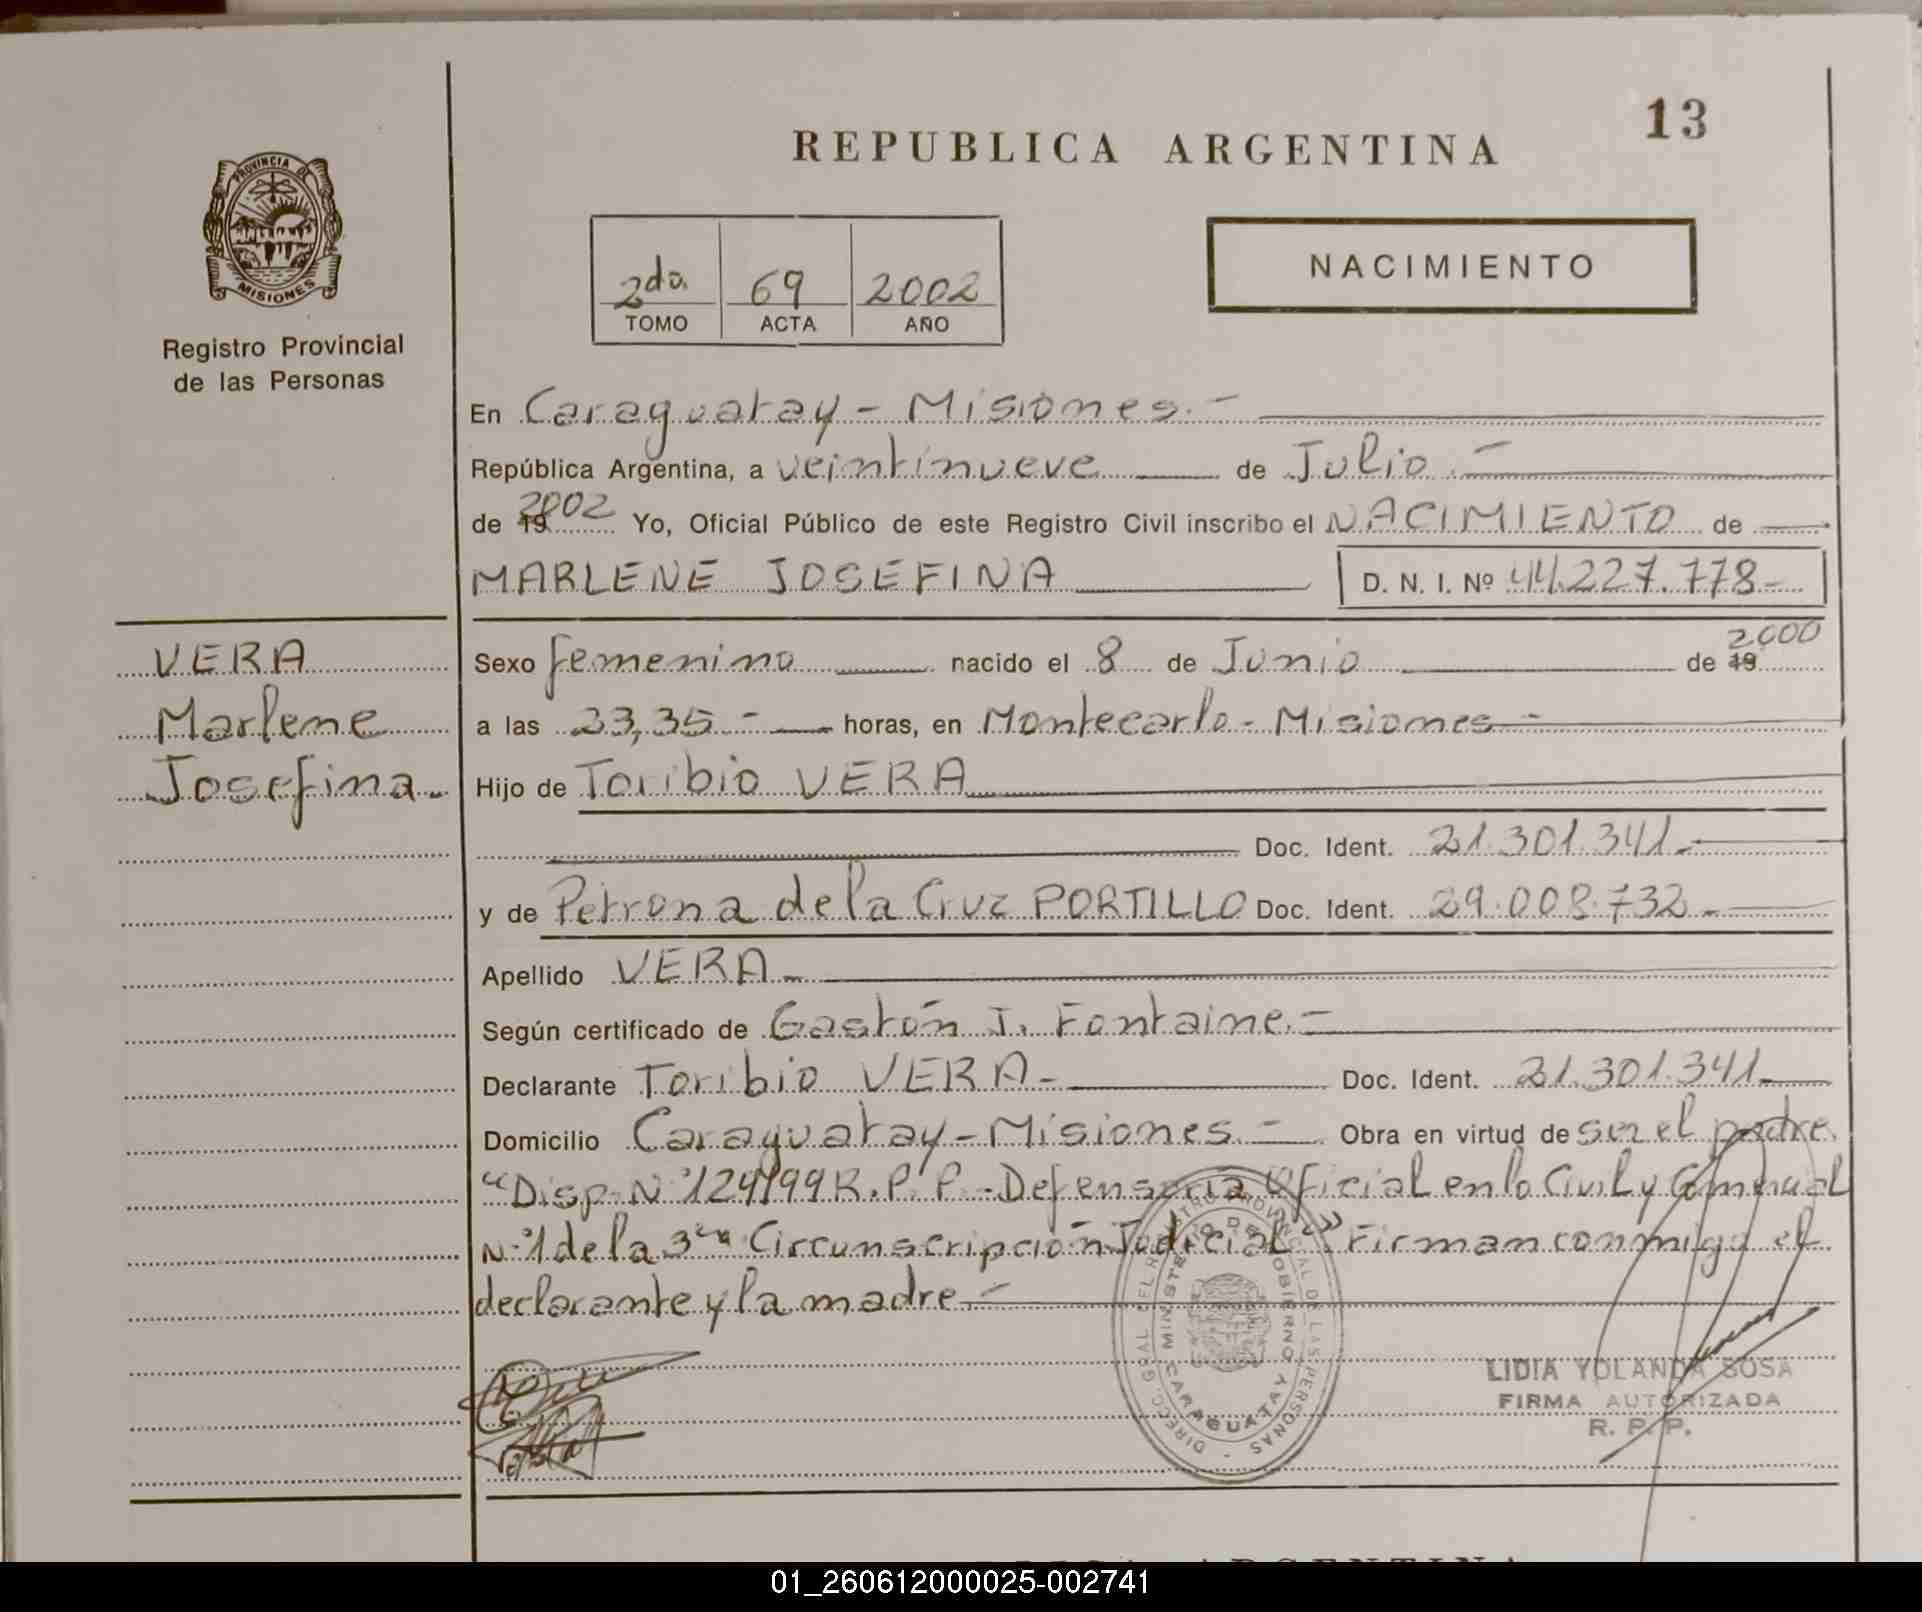 13
REPUBLICA ARGENTINA
PROVINCIA DE
MISIONES
Registro Provincial
de las Personas
2do. 69 2002
TOMO ACTA AÑO
NACIMIENTO
En Caraguatay - Misiones.-
República Argentina, a veintinueve de Julio.-
de 19 2002 Yo, Oficial Público de este Registro Civil inscribo el NACIMIENTO de
MARLENE JOSEFINA D. N. I. Nº 44.227.778-
VERA
Marlene
Josefina.-
Sexo femenino nacido el 8 de Junio de 19 2000
a las 23,35 - horas, en Montecarlo - Misiones -
Hijo de Toribio VERA
Doc. Ident. 21.301.341.-
y de Petrona de la Cruz PORTILLO Doc. Ident. 29.008.732.-
Apellido VERA.-
Según certificado de Gastón J. Fontaine.-
Declarante Toribio VERA.- Doc. Ident. 21.301.341.-
Domicilio Caraguatay - Misiones.- Obra en virtud de ser el padre.
"Disp. Nº 124/99 R.P.P.- Defensoría Oficial en lo Civil y Comercial
Nº 1 de la 3ra Circunscripción Judicial" Firman conmigo el
declarante y la madre.-
DIRECC. GRAL. DEL REGISTRO PROVINCIAL DE LAS PERSONAS
MINISTERIO DE GOBIERNO
CARAGUATAY
LIDIA YOLANDA SOSA
FIRMA AUTORIZADA
R. P. P.
01_260612000025-002741